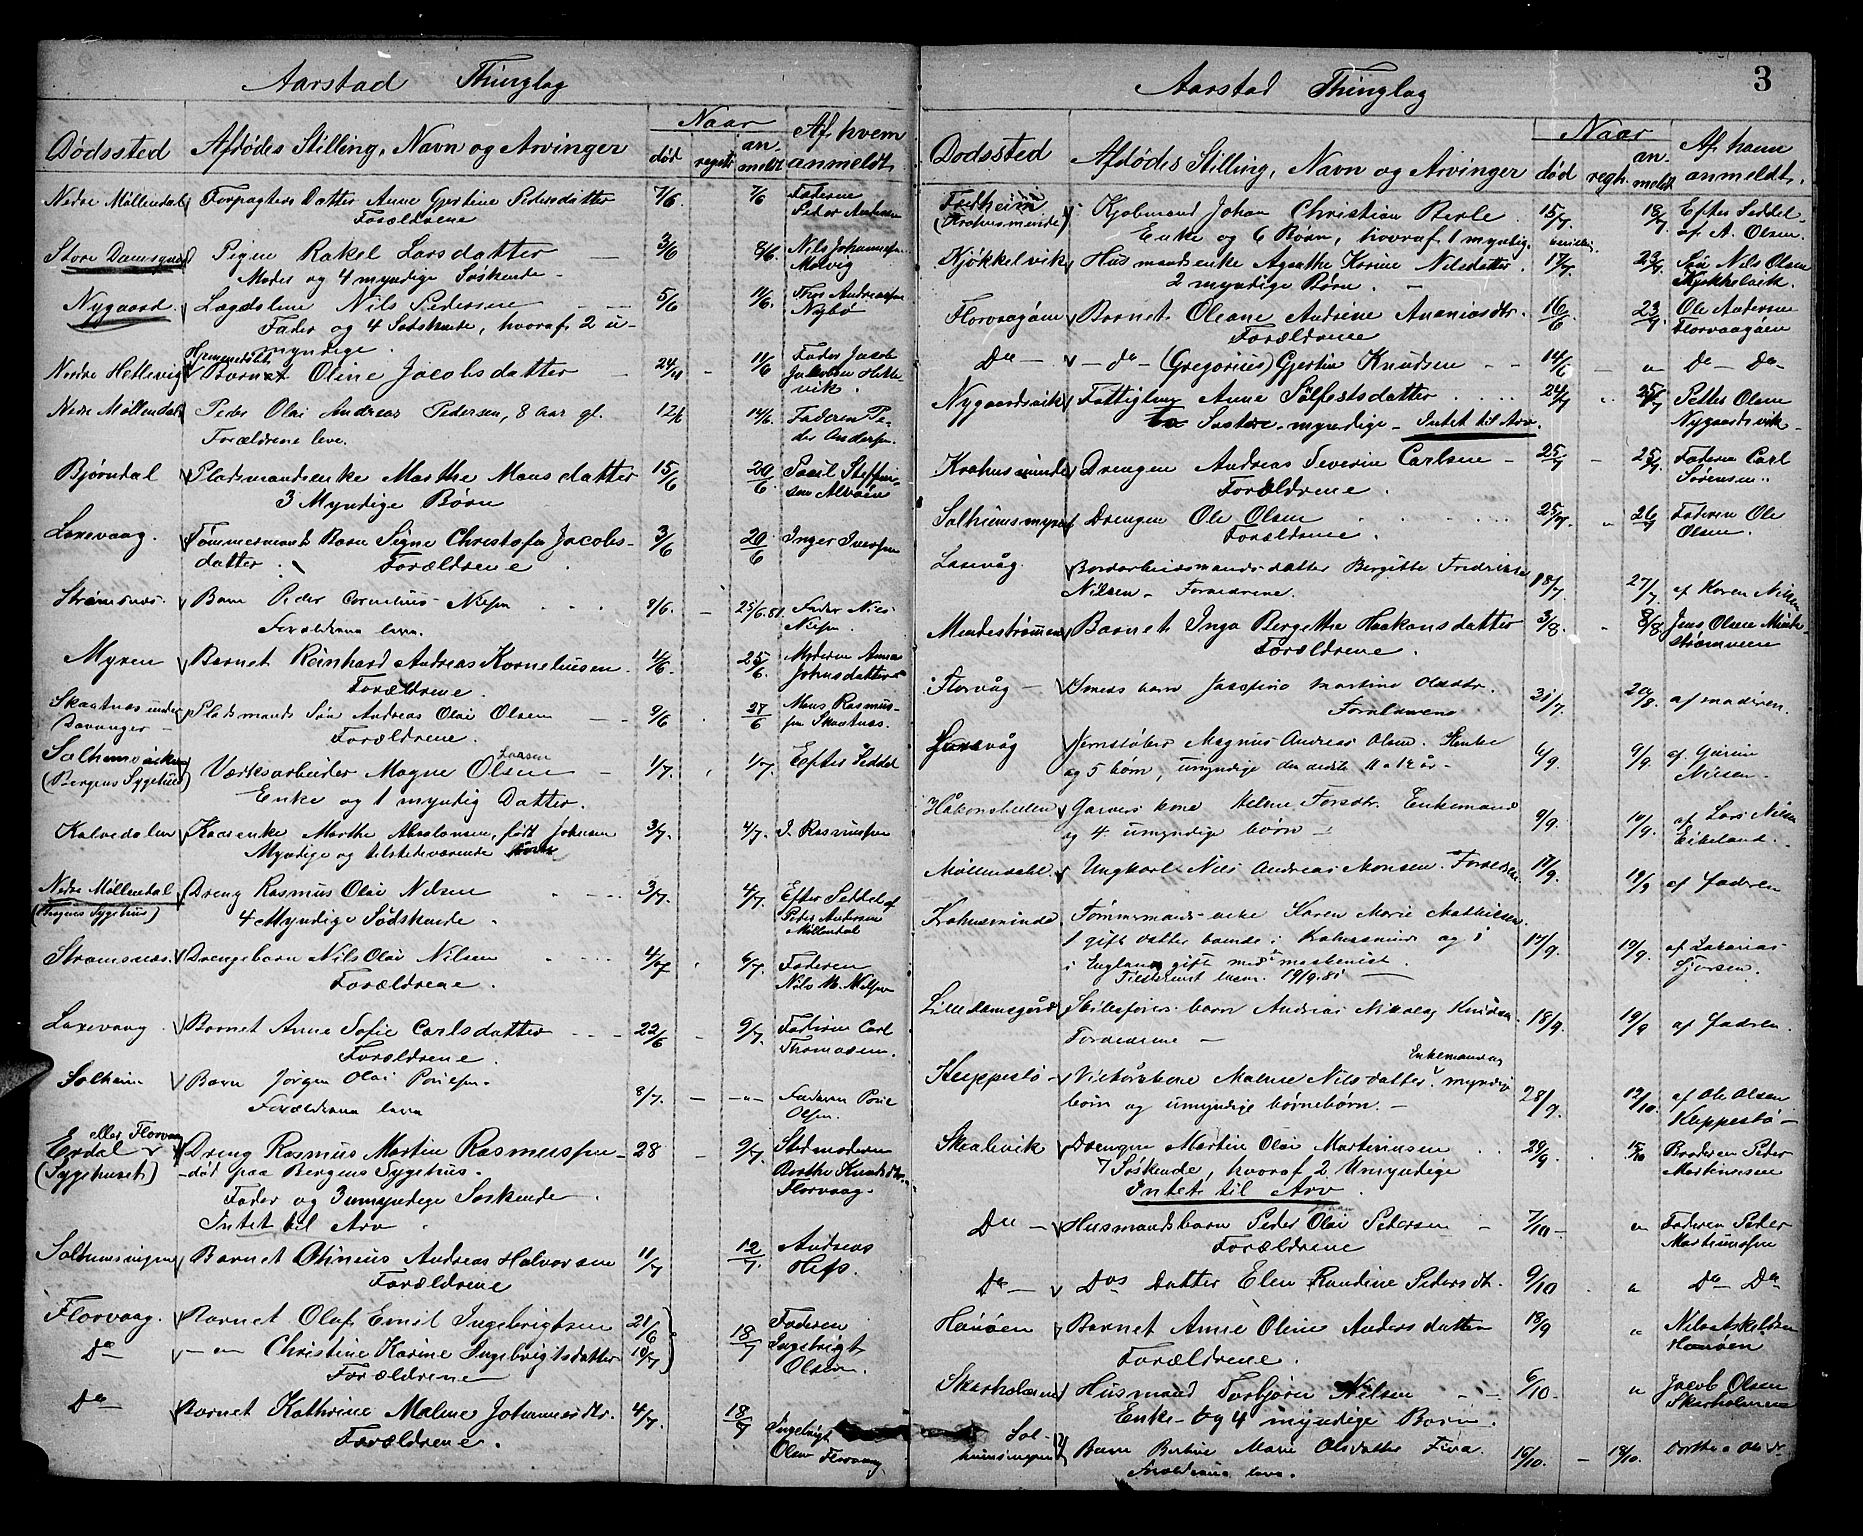 Aarstad Thinglag
Naar
Dødssted Afdødes Stilling, Navn og Arvinger død registr. anmeldt Af hvem anmeldt
Nedre Møllendal Forpagters Datter Anne Gjertine Pedersdatter 7/6 7/6 Faderen
Forældrene Peder Andersen
Store Damsgaard Pigen Rakel Larsdatter 3/6 8/6 Nils Johannessen
Moder og 4 myndige Søskende - Molvig
Nygaard Lagdølen Nils Pedersen 5/6 11/6 Thor Andreassen
Fader og 4 Sødskende, hvoraf 2 u- Nybø
myndige.
Nedre Hetlevig Hjemmedøbt Barnet Oline Jacobsdatter 24/4 - 11/6 Fader Jacob
Jacobsen Hetle-
vik.
Nedre Møllendal Peder Olai Andreas Pedersen, 8 aar gl. 12/6 14/6 Faderen Pe-
Forældrene leve. der Andersen.
Bjørndal Pladsmandsenke Marthe Monsdatter 15/6 20/6 Paul Steffen-
3 Myndige Børn sen Alvøen
Laxevaag. Tømmermands Barn Signe Christofa Jacobs- 3/6 20/6 Inger Iversen
datter. Forældrene
Strømsnæs. Barn Peder Cornelius Nilsen 9/6. - 25/6.81. Fader Nils
Forældrene leve. Nilsen.
Myren Barnet Reinhard Andreas Korneliussen. 1/6 25/6 Moderen Anna
Forældrene. Johnsdatter
Skaatnæs under
Davanger Pladsmands Søn Andreas Olai Olsen 9/6 27/6 Mons Rasmus-
Forældrene. sen Skaatnæs.
Solheimsviken
(Bergens Sygehus) Værksarbeider Mogne Olsen 1/7. 1/7. Efter Seddel
Enke og 1 myndig Datter.
Kalvedalen Kaarenke Marthe Absalonsen, født Johnsen 3/7. 4/7. J. Rasmussen
Myndige og tilstedeværende
Nedre Møllendal Dreng Rasmus Olai Nilsen 3/7. 4/7. Efter Seddel af
(Byens Sygehus) 4 Myndige Sødskende. Peder Andersen
Møllendal
Strømsnæs. Drengebarn Nils Olai Nilsen 4/7 6/7. Faderen
Forældrene. Nils M. Nilsen
Laxevaag. Barnet Anne Sofie Carlsdatter 22/6 9/7. Faderen Carl
Forældrene. Thomasen.
Solheim Barn Jørgen Olai Poulsen. 8/7. - -"- Faderen Poul
Forældrene leve Olsen.
eller Florvaag
Erdal Dreng Rasmus Martin Rasmussen 28 9/7. Stedmoderen
(Sygehuset) død paa Bergens Sygehus. Berthe Knudsdtr.
Fader og 3 umyndige Søskende. Florvaag.
Intet til Arv.
Solheimsvigen Barnet Othinius Andreas Halvorsen 11/7 12/7. Andreas
Forældrene
Florvaag. Barnet Olaf Emil Ingebrigtsen 21/6 18/7 Faderen
Do - " - Christine Karine Ingebrigtsdatter 10/7 Ingebrigt
Forældrene Olsen.
Do Barnet Kathrine Malene Johannesdtr. 4/7. 18/7 Ingebrigt
Forældrene. Olsen Florvaag

3
Aarstad Thinglag
Naar
Dødssted Afdødes Stilling, Navn og Arvinger død regh. anmeldt Af hvem anmeldt.
Fredheim
(Krohnsminde) Kjøbmand Johan Christian Berle 15/7 18/7 Efter Seddel
Enke og 6 Børn, hvoraf 1 myndig. af A. Olsen.
Kjøkkelvik Husmandsenke Agathe Karine Nilsdatter. 17/7. 23/7. Nils Olsen
2 myndige Børn. - Kjøkkelvik.
Florvaagøen Barnet Oleane Andrine Ananiasdtr. 16/6 23/7 Ole Andersen
Forældrene Florvaagøen
Do - - do - (Gregorius) Gjertin Knudsen 14/6 - " Do - Do -
Nygaardsvik Fattiglem Anne Sølfestsdatter 24/7 25/7 Petter Olsen
Søstere myndige - Intet til Arv. Nygaardsvik
Krohnsminde Drengen Andreas Severin Carlsen - 25/7 - 25/7. Faderen Carl
Forældrene. Sørensen.
Solheimsmyren Drengen Ole Olsen 25/7. 26/7 Faderen Ole
Forældrene. Olsen.
Laxevåg. Bordarbeidsmands datter Bergitte Fredrikke 18/7 27/7 af Karen Nilsen
Nilsen - Forældrene.
Mindestrømmen Barnet Inga Bergethe Haakonsdatter 3/8. 8/8. Jens Olsen Minde-
Forældrene. strømmen
Florvåg - Smeds barn Josefine Martine Olsdtr. 31/7. 20/8. af moderen.
Forældrene
Laxevåg Jernstøber Magnus Andreas Olsen. Enke 6/9. 9/9. af
og 5 børn, umyndige den ældste 11 a 12 år - Nielsen.
Håkonshellen Garvers kone Malene Forsdtr. Enkemand 9/9. 10/9. af Lars Nilsen
og 4 umyndige børn - Eikeland.
Møllendahl Ungkarl Nils Andreas Monsen. Forældre 17/9. 19/9. af Faderen
Krohnsminde Tømmermands enke Karen Marie Mathiesen. 17/9. 19/9. af Zakarias
1 gift datter boende i Krohnsminde og i
i England gift med maskinist.
19/9.81 -
Lille damsgård Skibsførers barn Andreas Nikolay Knudsen 18/9. 19/9 af Faderen.
Forældrene -
Enkemand og
Kleppestø - kone Malene Nilsdatter. myndige 28/9. 12/10. af Ole Olsen
børn og umyndige børnebørn. - Kleppestø -
Skaalvik Drengen Martin Olai Martinusen 29/9. 15/10 Broderen Peder
7 Søskende, hvoraf 2 Umyndige Martinusen
Intet til Arv.
Do - Husmandsbarn Peder Olai Pedersen - 7/10- " Faderen Peder
Forældrene Martinussen
Do - Dos Datter Elen Randine Pedersdtr. 9/10 " Do Do
Hanøen Barnet Anne Oline Andersdatter 18/9 " Nils
Forældrene. Hanøen
Skarholmen Husmand Torbjørn Nilsen 6/10. " Jacob Olsen
Enke - og 4 myndige Børn. Skarholmen
Sol-
heimsvigen Barn Marie Olsdatter 16/10. - 18/10.
Forældrene leve.